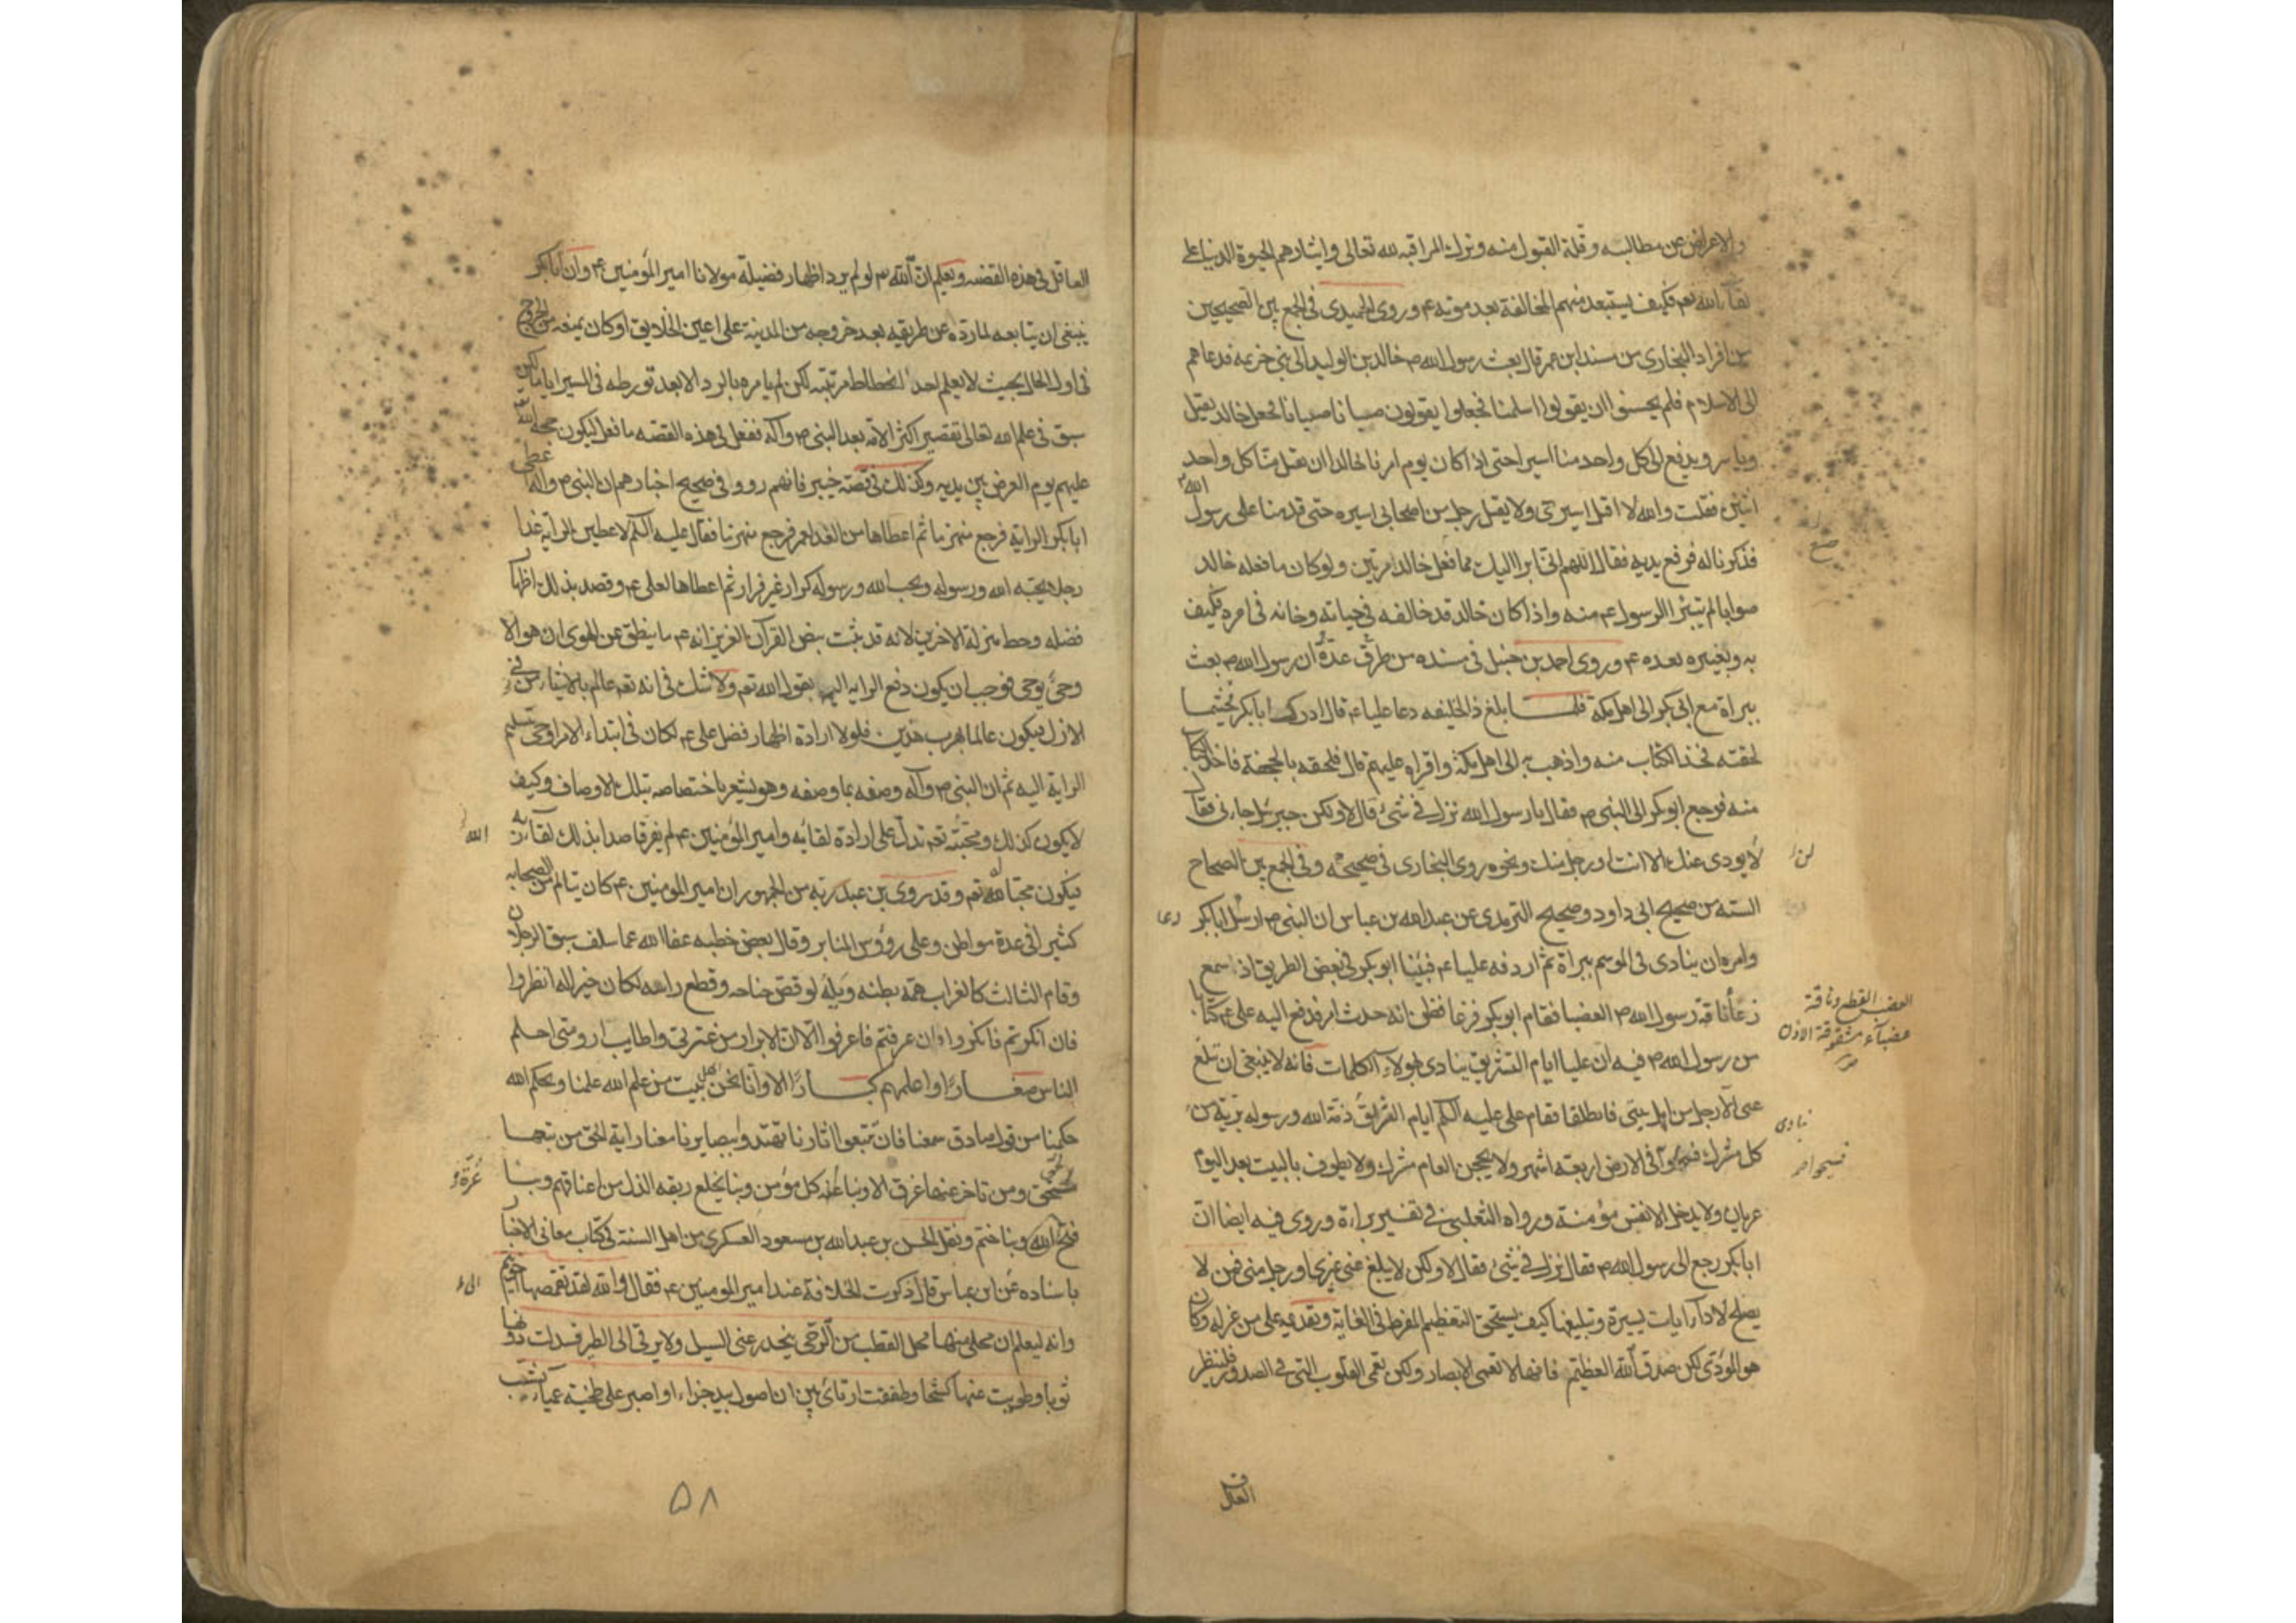 والاعراض عن مطالبه وقلة القبول منه وترك المراقبه لله تعالى وايثارهم الحيوة الدنيا على
لقاء الله تعم فكيف يستبعد منهم المخالفة بعد موته ع وروى الحميدى فى الجمع بين الصحيحين
من افراد البخارى من مسند ابن عمر قال بعث رسول الله ص خالد بن الوليد الى بنى خزيمه فدعاهم
الى الاسلام فلم يحسنوا ان يقولوا اسلمنا فجعلوا يقولون صبانا صبانا فجعل خالد يقتل
وياسر ويدفع الى كل واحد منا اسيرا حتى اذا كان يوم امرنا خالد ان يقتل منا كل واحد
اسيره فقلت والله لا اقتل اسيرى ولا يقتل رجل من اصحابى اسيره حتى قدمنا على رسول الله ص
فذكرناه له فرفع يديه فقال اللهم انى ابرا اليك مما فعل خالد مرتين ولو كان ما فعله خالد
صوابا لم يتبرء الرسول ع منه واذا كان خالد قد خالفه فى حياته وخانه فى امره فكيف
به وبغيره بعده ع وروى احمد بن حنبل فى مسنده من طرق عدة ان رسول الله ص بعث
ببراة مع ابى بكر الى اهل مكة فلما بلغ ذا الخليفه دعا عليا ع قال ادرك ابا بكر فحيثما
لحقته فخذ الكتاب منه واذهب به الى اهل مكة واقراه عليهم قال فلحقه بالجحفة فاخذ الكتاب
منه فرجع ابو بكر الى النبى ص فقال يا رسول الله نزل فى شئ قال لا ولكن جبرئيل جاءنى فقال
لا يودى عنك الا انت او رجل منك ونحوه روى البخارى فى صحيحه وفى الجمع بين الصحاح
لن
السته من صحيح ابى داود وصحيح الترمذى عن عبد الله بن عباس ان النبى ص ارسل ابا بكر
دعا
وامره ان ينادى فى الموسم ببراة ثم اردفه عليا ع فبينا ابو بكر فى بعض الطريق اذ سمع
رغا ناقة رسول الله ص العضبا فقام ابو بكر فزعا فظن انه حدث امر فدفع اليه على ع كتابا
العضب القطع وناقة
عضباء مشقوقة الاذن
من رسول الله ص فيه ان عليا ايام التشريق ينادى بهولاء الكلمات فانه لا ينبغى ان يبلغ
عنى الا رجل من اهل بيتى فانطلقا فقام على عليه السلم ايام التشريق ذمة الله ورسوله بريّة من
ينادى
كل مشرك فسيحوا فى الارض اربعة اشهر ولا يحجن العام مشرك ولا يطوف بالبيت بعد اليوم
فسيحوا
عريان ولا يدخل الا نفس مؤمنة ورواه الثعلبى فى تفسير براءة وروى فيه ايضا ان
ابا بكر رجع الى رسول الله ص فقال نزل فى شئ فقال لا ولكن لا يبلغ عنى غيرى او رجل منى فمن لا
يصلح لاداء ايات يسيرة وتبليغها كيف يستحق التعظيم المفرط فى الغاية وتقديمه على من عزله وكان
هو المؤدى لكن صدق الله العظيم فانها لا تعمى الابصار ولكن تعمى القلوب التى فى الصدور فلينظر
العاقل
العاقل فى هذه القضه ويعلم ان الله تع لو لم يرد اظهار فضيلة مولانا امير المؤمنين ع وان ابا بكر
ينبغى ان يتابعه لما رده عن طريقه بعد خروجه من المدينة على اعين الخلايق او كان يمنعه من الخروج
فى اول الحال بحيث لا يعلم احد انحطاط مرتبته لكن لم يامره بالرد الا بعد تورطه فى المسير اياما لكن
سبق فى علم الله تعالى تقصير اكثر الامة بعد النبى ص وآله ففعل فى هذه القضه ما فعل ليكون حجة الله تع
عليهم يوم العرض بين يديه وكذلك فى قصة خيبر فانهم رووا فى صحيح اخبارهم ان النبى ص وآله اعطى
ابا بكر الراية فرجع منهزما ثم اعطاها من الغد لعمر فرجع منهزما فقال عليه السلم لاعطين الراية غدا
رجلا يحبه الله ورسوله ويحب الله ورسوله كرار غير فرار ثم اعطاها لعلى ع وقصد بذلك اظهار
فضله وحط منزلة الاخرين لانه قد ثبت بنص القرآن العزيز انه ع ما ينطق عن الهوى ان هو الا
وحى يوحى فوجب ان يكون دفع الراية اليه بقول الله تعم ولا شك فى انه تعم عالم بالاشياء فى
الازل فيكون عالما بهرب هذين فلولا ارادة اظهار فضل على ع لكان فى ابتداء الامر اوحى بتسليم
الراية اليه ثم ان النبى ص وآله وصفه بما وصفه وهو يشعر باختصاصه بتلك الاوصاف وكيف
لا يكون كذلك ومحبته تعم تدل على ارادة لقائه وامير المؤمنين ع لم يفر قاصدا بذلك لقاء ربه
الله
فيكون محبا لله تعم وقد روى بن عبد ربه من الجمهور ان امير المومنين ع كان يتالم من الصحابه
كثيرا فى عدة مواطن وعلى رؤوس المنابر وقال بعض خطبه عفا الله عما سلف سبق الرجلان
وقام الثالث كالغراب همه بطنه ويله لو قص جناحه وقطع راسه لكان خير له انظروا
فان انكرتم فانكروا وان عرفتم فاعرفوا الا ان الابرار من عترتى واطايب ارومتى احلم
الناس صغارا واعلمهم كبارا الا وانا نحن اهل بيت من علم الله علمنا وبحكم الله
حكمنا من قول صادق سمعنا فان تتبعوا اثارنا تهتدوا ببصايرنا معنا راية الحق من تبعها
لحق ومن تاخر عنها غرق الا وبنا عزة كل مؤمن وبنا يخلع ربقه الذل من اعناقهم وبنا
عزة
فتح الله وبنا ختم ونقل الحسن بن عبد الله بن مسعود العسكرى من اهل السنة فى كتاب معانى الاخبار
باسناده عن ابن عباس قال ذكرت الخلافة عند امير المومنين ع فقال والله لقد تقمصها اخو تيم
وانه ليعلم ان محلى منها محل القطب من الرحى ينحدر عنى السيل ولا يرقى الى الطير فسدلت دونها
ثوبا وطويت عنها كشحا وطفقت ارتائ بين ان اصول بيد جذاء او اصبر على طخية عمياء يشيب
۵۸